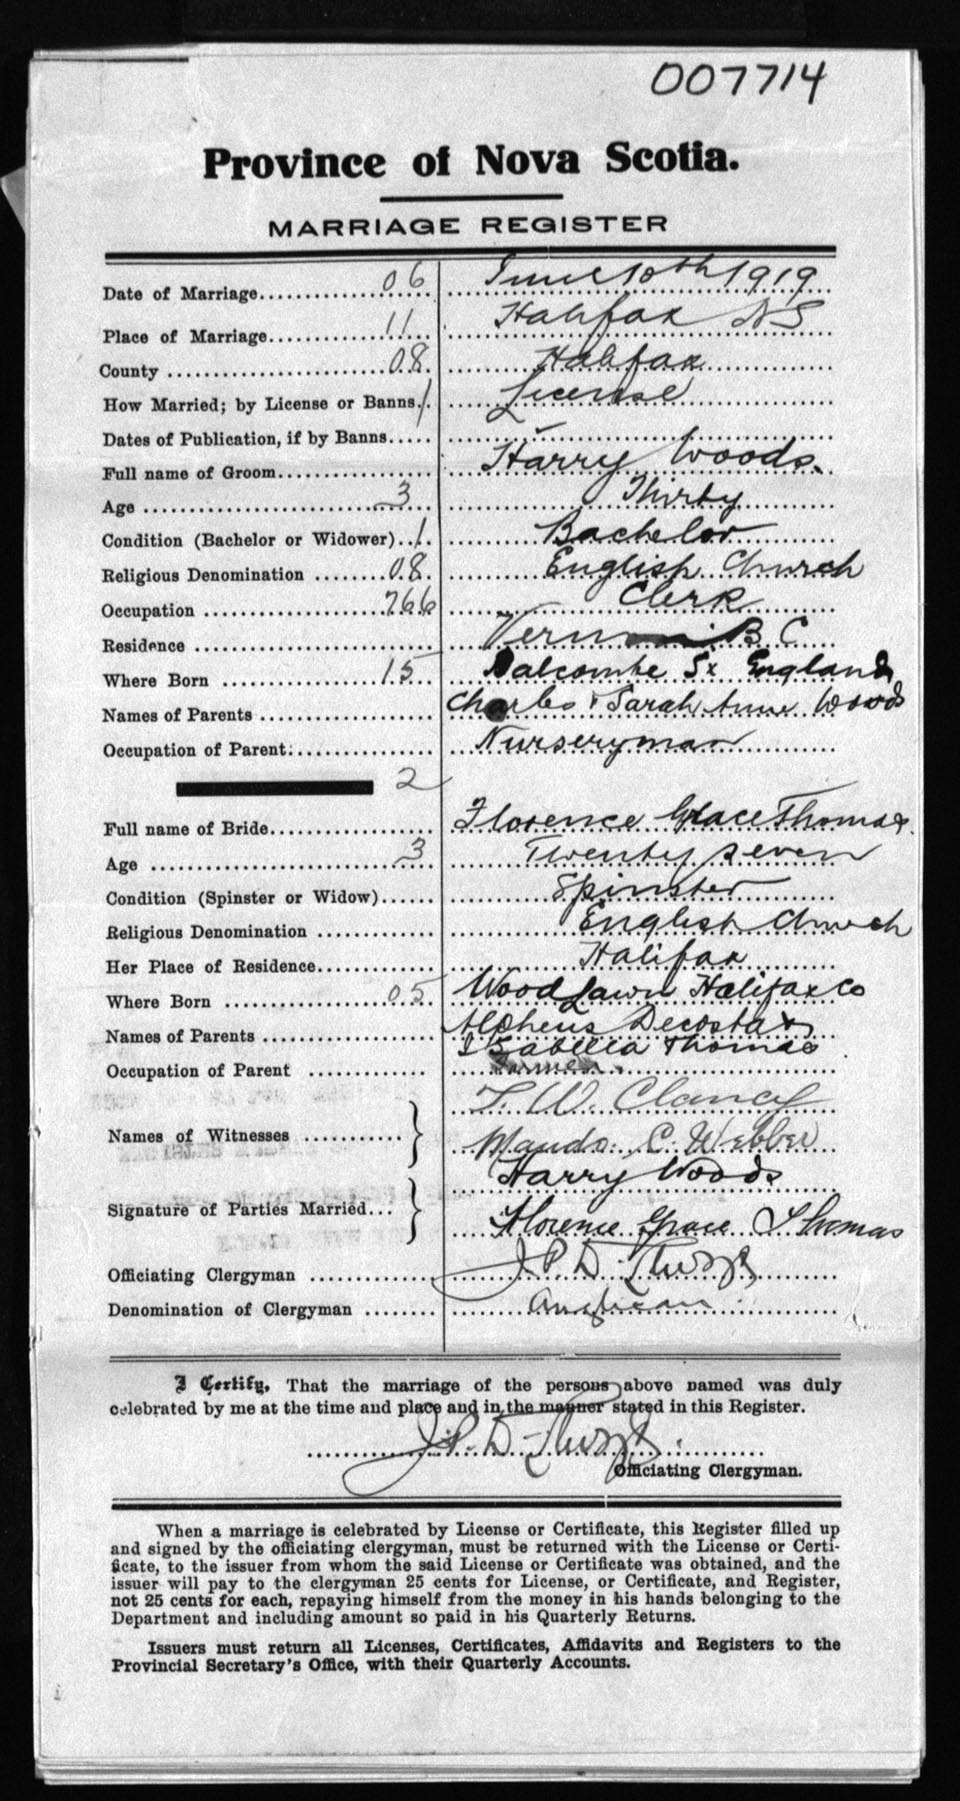 007714
Province of Nova Scotia.
MARRIAGE REGISTER
Date of Marriage 06 June 10th 1919
Place of Marriage 11 Halifax NS
County 08 Halifax
How Married; by License or Banns 1 License
Dates of Publication, if by Banns –
Full name of Groom Harry Woods.
Age 3 Thirty
Condition (Bachelor or Widower) 1 Bachelor
Religious Denomination 08 English Church
Occupation 766 Clerk
Residence Vernon B.C
Where Born 15 Salcombe Sx England
Names of Parents Charles & Sarah Anne Woods
Occupation of Parent Nurseryman
2
Full name of Bride Florence Grace Thomas.
Age 3 Twenty seven
Condition (Spinster or Widow) Spinster
Religious Denomination English Church
Her Place of Residence Halifax
Where Born 05 WoodLawn Halifax Co
Names of Parents Alpheus Decosta &
Isabella Thomas
Occupation of Parent Farmer.
Names of Witnesses } W. Clancy
C. Webber
Signature of Parties Married } Harry Woods
Florence Grace Thomas
Officiating Clergyman
Denomination of Clergyman Anglican
I Certify, That the marriage of the persons above named was duly
celebrated by me at the time and place and in the manner stated in this Register.
Officiating Clergyman.
When a marriage is celebrated by License or Certificate, this Register filled up
and signed by the officiating clergyman, must be returned with the License or Certi-
ficate, to the issuer from whom the said License or Certificate was obtained, and the
issuer will pay to the clergyman 25 cents for License, or Certificate, and Register,
not 25 cents for each, repaying himself from the money in his hands belonging to the
Department and including amount so paid in his Quarterly Returns.
Issuers must return all Licenses, Certificates, Affidavits and Registers to the
Provincial Secretary's Office, with their Quarterly Accounts.